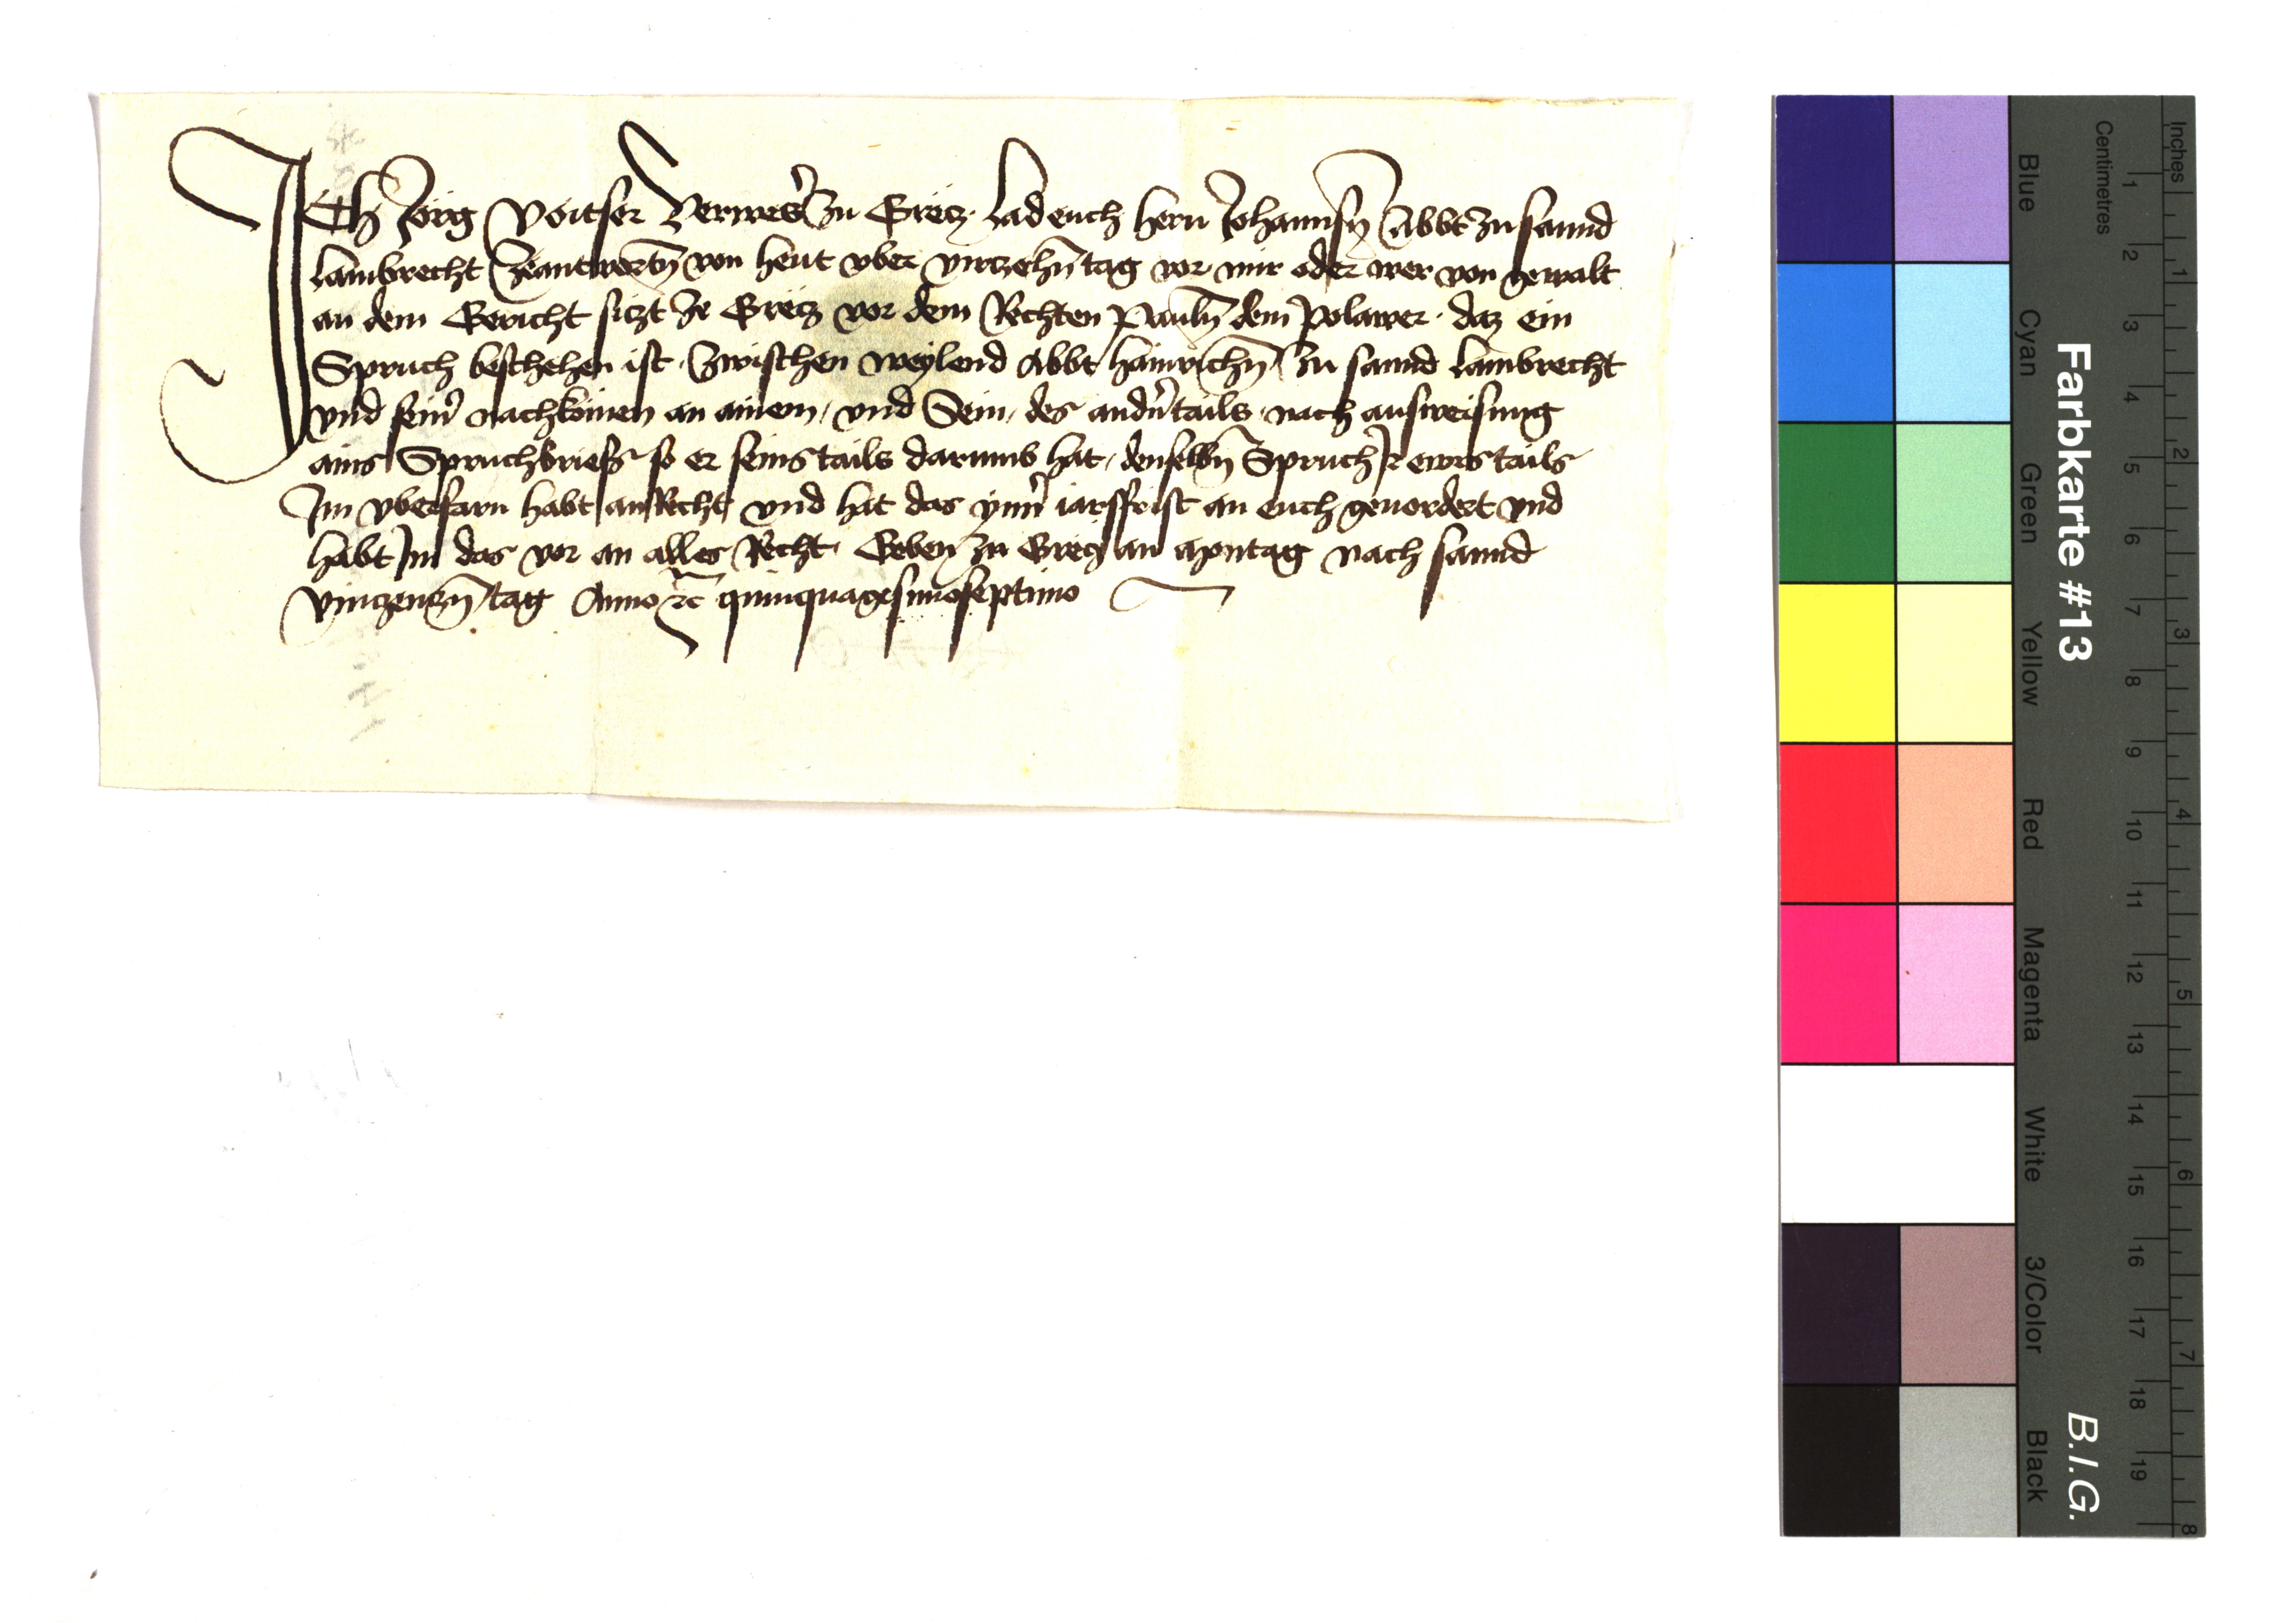 Ich Jorg Voitser Verweser zu Gretz Lad euch hern Johannsn̄ Abbt zu sannd
Lambrecht Zeantwortn̄ von heut vber virtzehn̄ tag vor mir oder wer von gewalt
an dem Gericht sitzt Ze Gretz vor dem Rechten Pauln̄ dem Polawer daz ein
Spruch beschehen ist Zwischen weylend Abbt Hainrichn̄ zu sannd Lambrecht
vnd sein̄ nachkomen an ainem vnd Sein des andn̄ tails nach ausweisung
ains Spruchbriefs so er seins tails darumb hat denselbn̄ Spruch Ir ewrs tails
Im vberfarn habt an Recht vnd hat das ynn̄ iarsfrist an euch geuordert vnd
habt Im das vor an alles Recht Geben zu Gretz an Montag nach sannd
Vinczenczn̄ tag Anno ꝛc quinquagesimoseptimo
Inches
Centimetres
1 2 3 4 5 6 7 8 9 10 11 12 13 14 15 16 17 18 19
1 2 3 4 5 6 7 8
Farbkarte #13
B.I.G.
Blue Cyan Green Yellow Red Magenta White 3/Color Black